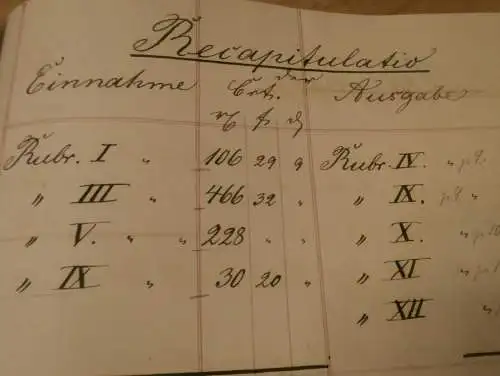 Recapitulatio
der
Einnahme Crt. Ausgabe
Rubr. I " 106 29 9 Rubr. IV. " p9.
" III " 466 32 " " IX. p9 "
" V. " " 228 " " " X. " p10
" IX " 30 20 " " XI "
" XII "